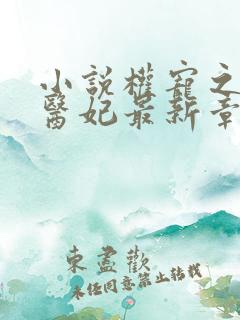 小說權寵之
醫妃最新章
東盡歡
未经同意禁止转载